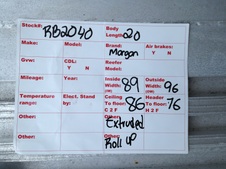 Stock#: RB2040 Body Length: 20
Make: Model: Brand: Morgan Air brakes: Y N
Gvw: CDL: Y N Reefer Model:
Mileage: Year: Inside Width 89 Outside Width 96
Temperature range: Elect. Stand by: Ceiling To floor: C 2 F 86 Header To floor: H 2 F 76
Other: Other: Extruded
Other: Other: Roll up